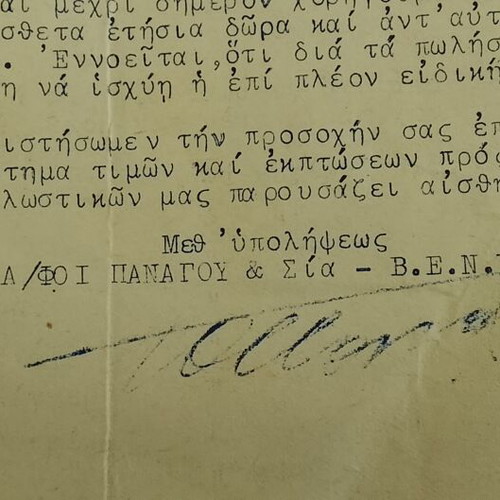 μέχρι σήμερον
σθετα ἐτήσια δῶρα καί ἀντ' αὐτ
. Ἐννοεῖται, ὅτι διά τά πωλήσ
η νά ἰσχύῃ ἡ ἐπί πλέον εἰδική
ιστήσωμεν τήν προσοχήν σας ἐπ
τημα τιμῶν καί ἐκπτώσεων πρός
λωστικῶν μας παρουσάζει αἰσθη
Μεθ 'ὑπολήψεως
Α/ΦΟΙ ΠΑΝΑΓΟΥ & Σία - Β.Ε.Ν.